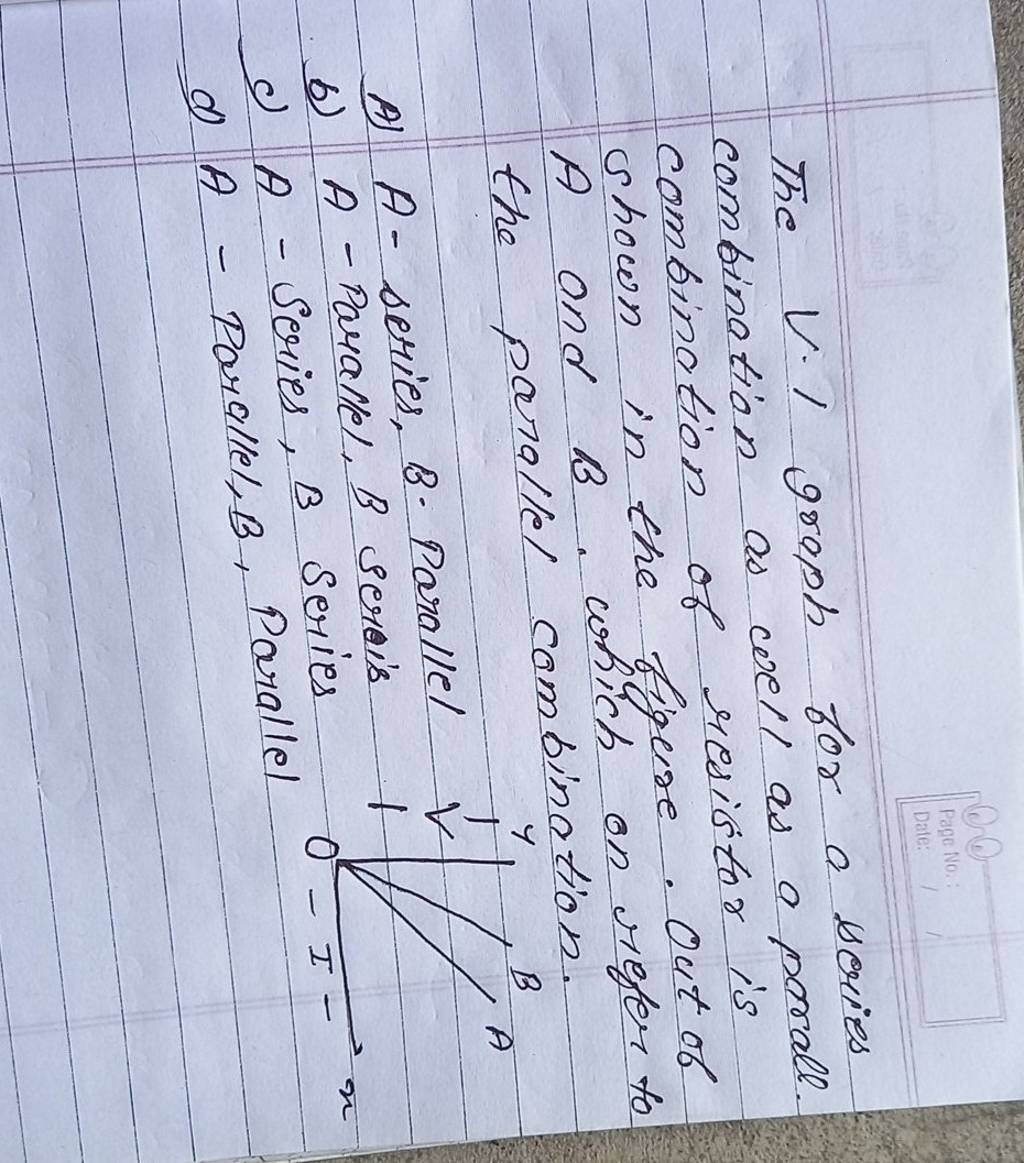 Page No.:
Date: / /
The V.I graph for a series
combination as well as a parall.
combination of resistor is
shown in the figure. Out of
A and B. which on refer to
the parallel combination.
A) A- series, B- Parallel
b) A - Parallel, B series
c) A - Series, B Series
d) A - Parallel, B, Parallel
y
B
A
V
O - I - x